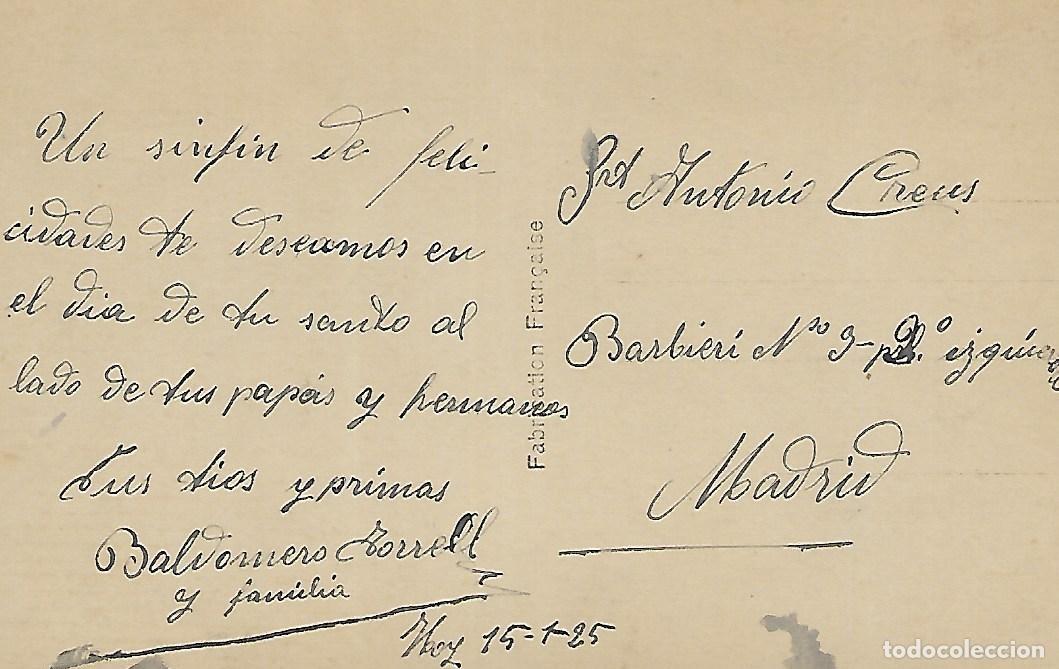 Un sinfin de feli-
cidades te deseamos en
el dia de tu santo al
lado de tus papás y hermanos
Tus tios y primas
Baldomero Torrell
y familia
Hoy 15-1-25
Fabrication Française
Srt Antonio Creus
Barbieri Nº 9- izquierda
Madrid
todocoleccion